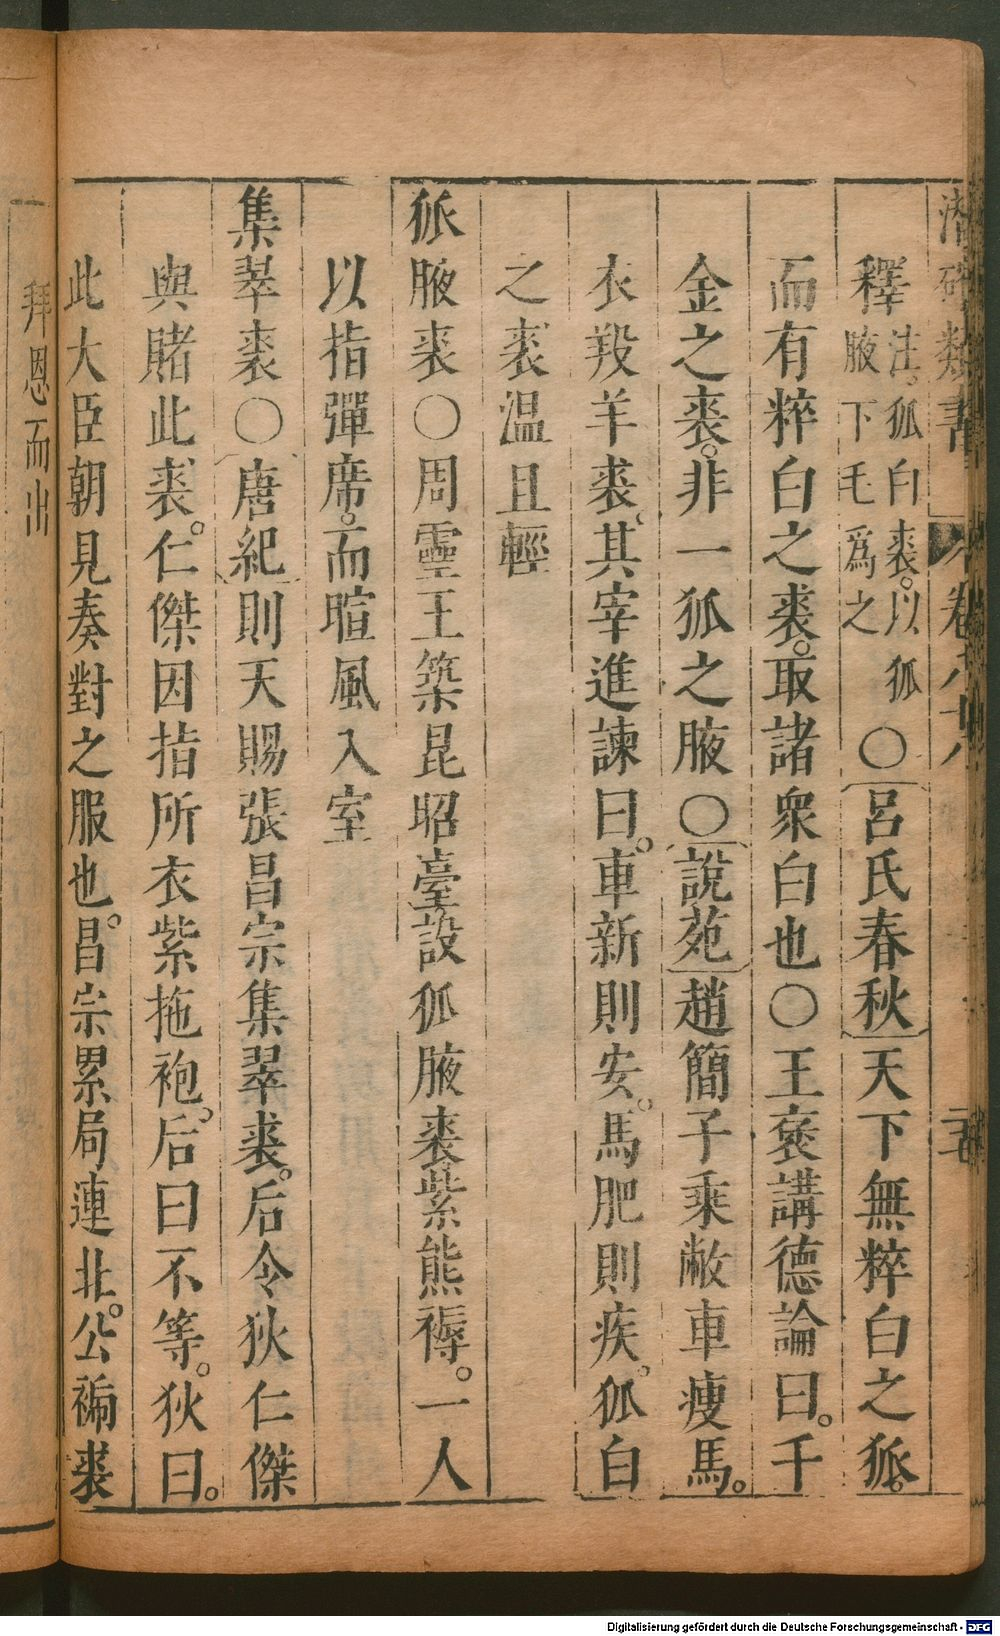 潛確類書 卷八十八
釋 注。狐白裘。以狐腋下毛爲之 ○呂氏春秋天下無粹白之狐。
而有粹白之裘。取諸衆白也○王褒講德論曰。千
金之裘。非一狐之腋○說苑趙簡子乘敝車瘦馬。
衣羖羊裘。其宰進諫曰。車新則安。馬肥則疾。狐白
之裘溫且輕
狐腋裘○周靈王築昆昭臺設狐腋裘紫熊褥。一人
以指彈席。而暄風入室
集翠裘○唐紀則天賜張昌宗集翠裘。后令狄仁傑
與賭此裘。仁傑因指所衣紫拖袍。后曰不等。狄曰。
此大臣朝見奏對之服也。昌宗累局連北。公褫裘
拜恩而出
Digitalisierung gefördert durch die Deutsche Forschungsgemeinschaft - DFG